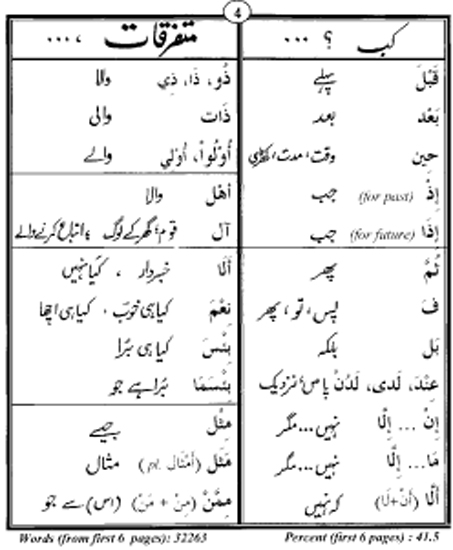 4
کب ؟ ...
قَبْلَ پہلے
بَعْدَ بعد
حِين وقت، مدت، گھڑی
إِذْ (for past) جب
إِذَا (for future) جب
ثُمَّ پھر
فَ پس، تو، پھر
بَل بلکہ
عِنْدَ، لَدى، لَدُنْ پاس، نزدیک
إِنْ ... إِلَّا نہیں... مگر
مَا... إِلَّا نہیں... مگر
أَلَّا (أَنْ+لَا) کہ نہیں
متفرقات ، ...
ذُو، ذَا، ذِي والا
ذَات والی
أُوْلُواْ، أُوْلِي والے
أَهْل والا
آل قوم، گھر کے لوگ ، اتباع کرنے والے
أَلَا خبردار ، کیا نہیں
نِعْمَ کیا ہی خوب ، کیا ہی اچھا
بِئْسَ کیا ہی بُرا
بِئْسَمَا بُرا ہے جو
مِثْل جیسے
مَثَل (أَمْثَال pl.) مثال
مِمَّنْ (مِنْ + مَنْ) (اس) سے جو
Words (from first 6 pages): 32263 Percent (first 6 pages) : 41.5